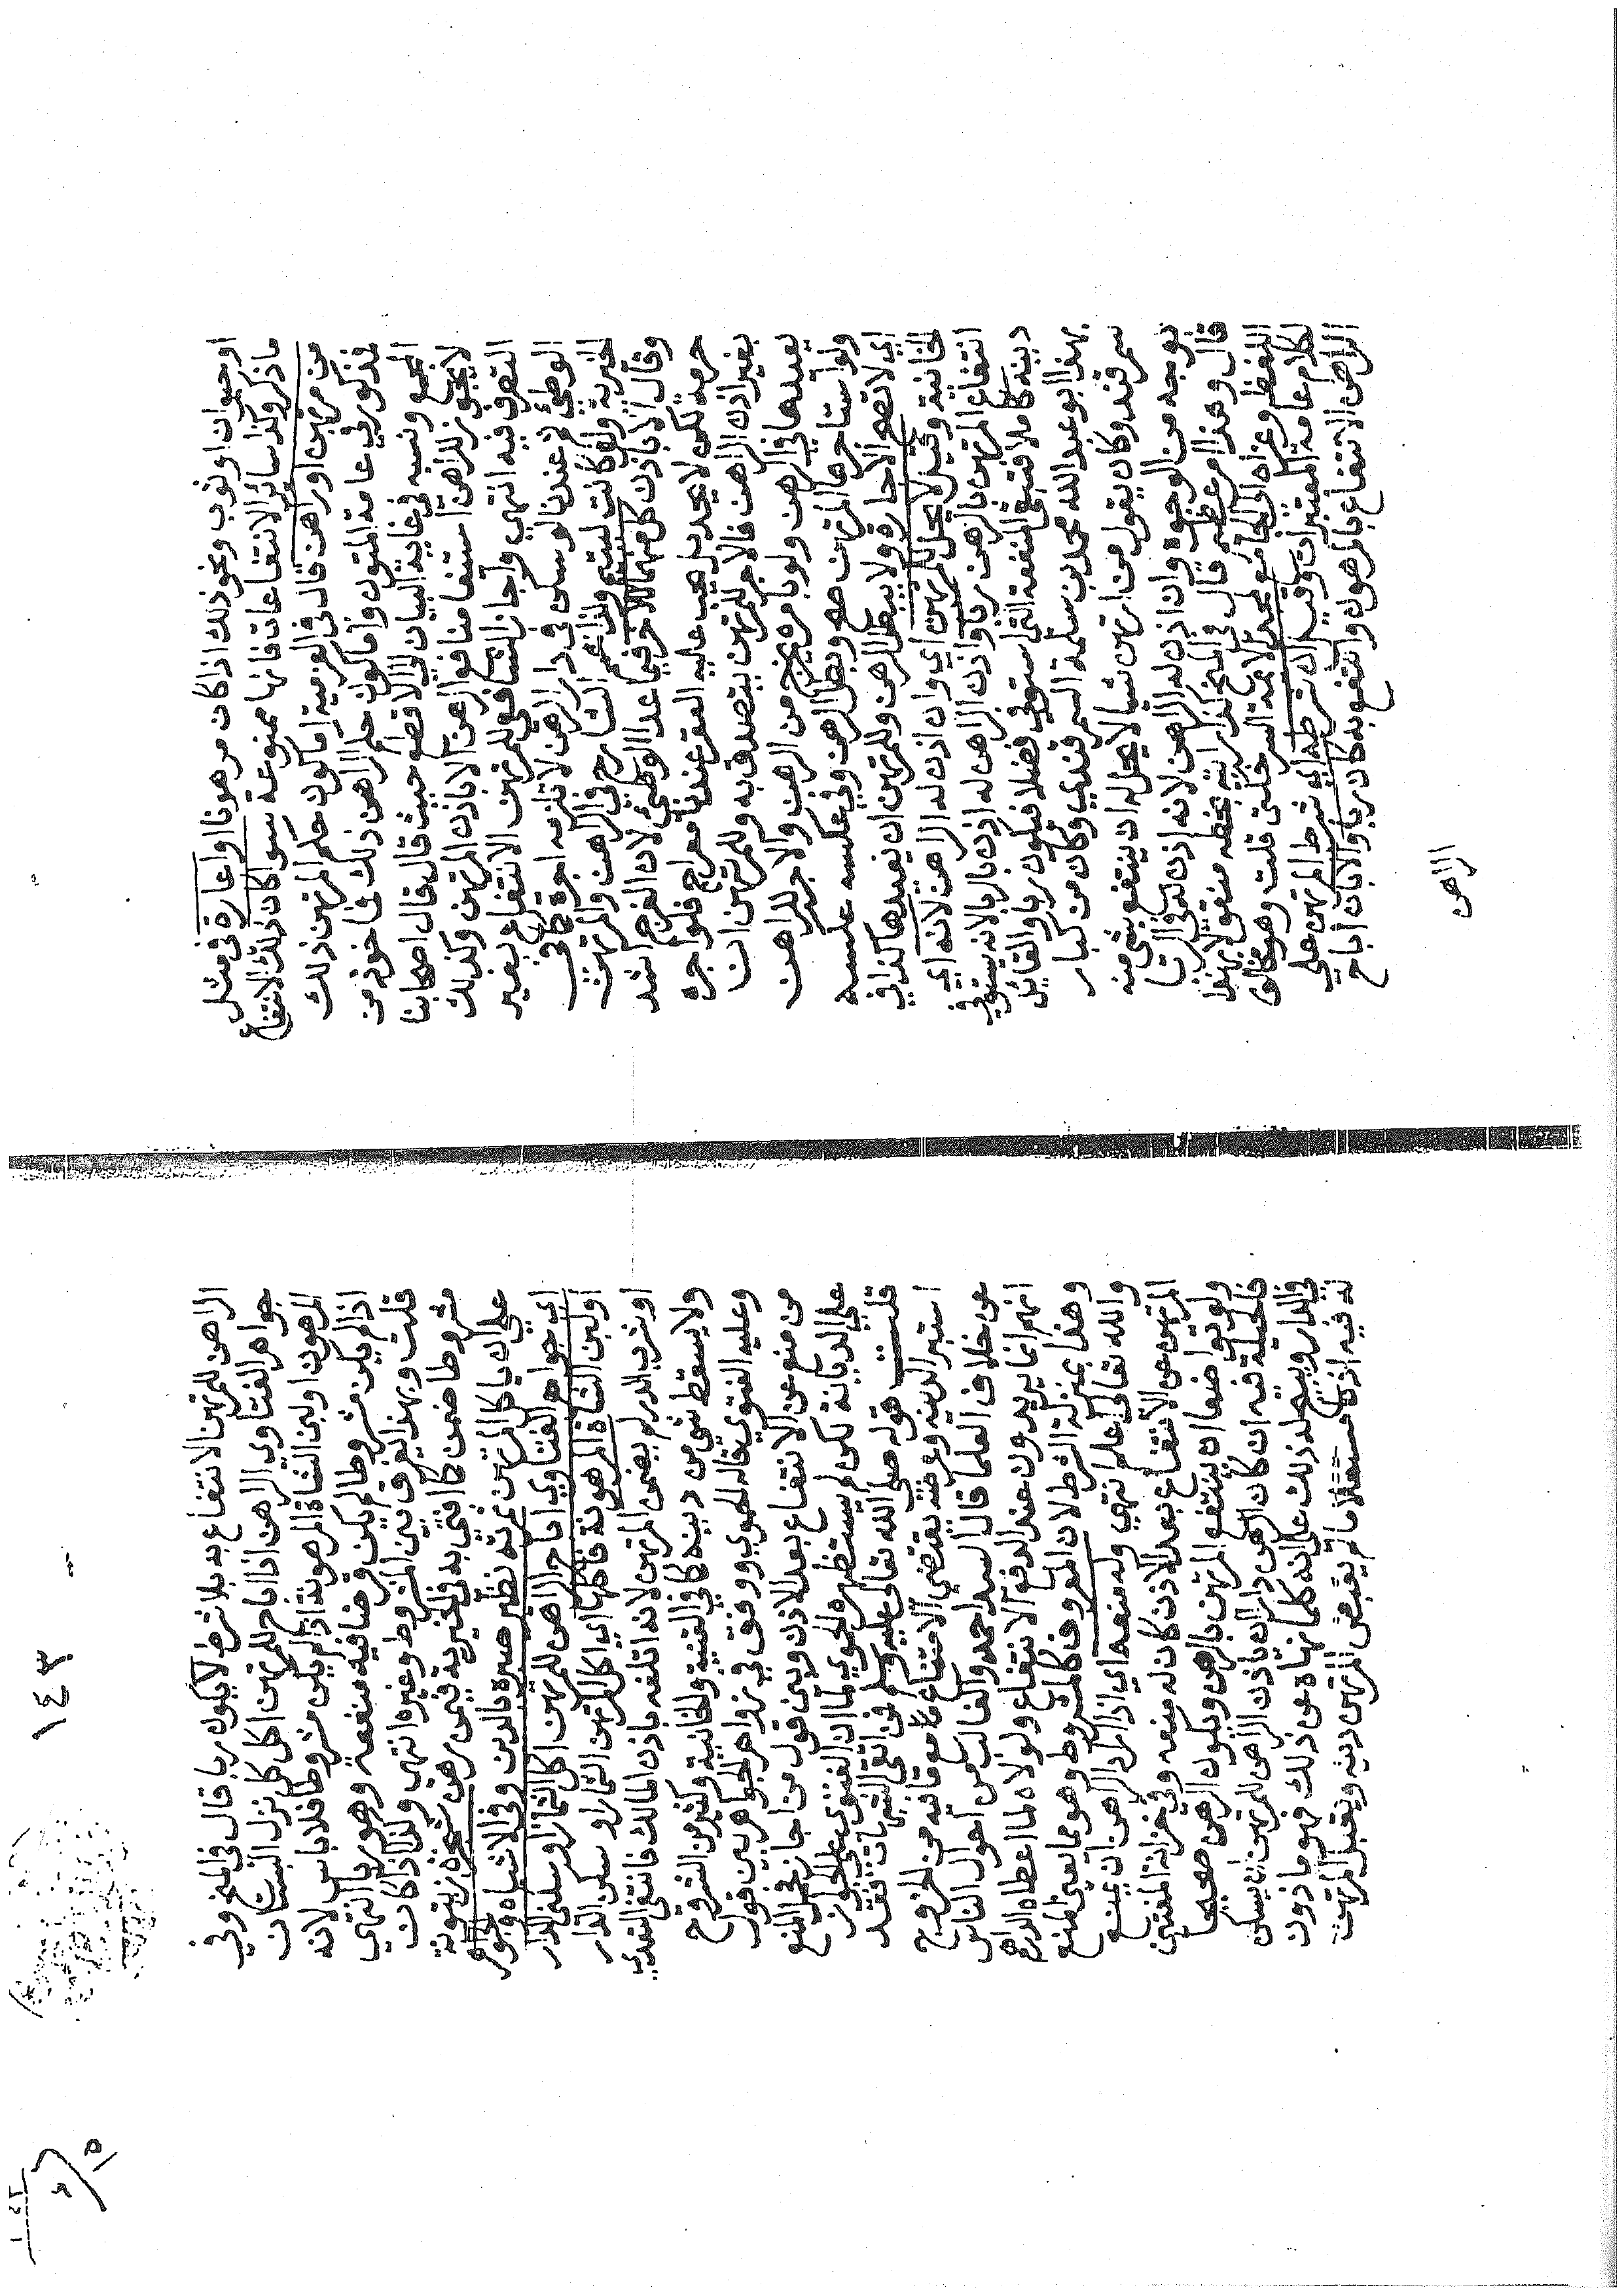 او حيوان او ثوب ونحو ذلك اذا كان مرهونا او اعارة في مثل
ما ذكر وكذا سائر الانتفاعات فانها ممنوعة سوا كان ذلك الانتفاع
من مرتهن او راهن قال في العزمية اما كون حكم المرتهن ذلك
فمذكور في عامة المتون واما كون حكم الراهن ذلك فماخوذ من
المجمع ونسبه في غاية البيان الي الاقطع حيث قال قال اصحابنا
لا يجوز للراهن استيفا منافع الرهن الا باذن المرتهن وكذلك
التصرف فيه انتهي واجاز الشافعي للمرتهن الانتفاع بغير
الوطئ ثم عندنا لو سكن في دار الرهن لا تلزمه اجرة كما في
الخيرية ولو كانت ليتيم ولذا عمم الشارح في الراهن والمرتهن
وقال الا باذن كل منهما للاخر فيما عدا الوطئ لان الفرج اشد
حرمة لكن لا يحد بل يجب عليه العقر عندنا معراج فلو اجره
بغير اذن الراهن فالاجر للمرتهن يتصدق به وللمرتهن ان
يعيدها في الرهن ولو بامره يخرج من الرهن والاجر للراهن
ولو استاجرها المرتهن صح وبطل الرهن وفي عكسه عكسه
اي لا تصح الاجارة ولا يبطل الرهن وللمرتهن ان يعيدها كذا في
الخانية وقيل لا يحل للمرتهن اي وان اذن له الراهن لانه اي
انتفاع المرتهن بالرهن ربا واذن الراهن له اذن بالربا لانه يستوفي
دينه كاملا فتبقى المنفعة التي استوفى فضلا فيكون ربا والقائل
بهذا ابو عبد الله محمد بن سلمة السمرقندي وكان من كبار
سمرقند وكان يقول من ارتهن شيا لا يحل له ان ينتفع بشي منه
بوجه من الوجوه وان اذن له الراهن لانه اذن له في الربا
قال وهذا امر عظيم قال في المنح كذا رايته بخطه منقولا بهذا
اللفظ وعزاه الي الجامع لمجد الائمة السرخكتي قلت وهو مخالف
لكلام عامة المعتبرات وقيل ان شرطه اي شرط المرتهن علي
الراهن الانتفاع بالمرهون وانتفع به كان ربا والا بان اباح
الراهن
١٤٣
الراهن للمرتهن الانتفاع به بلا شرط لا يكون ربا قال في المنح وفي
جواهر الفتاوي الراهن اذا اباح للمرتهن اكل نزل البستان
المرهون او لبن الشاة المرهونة اذا لم يكن مشروطا فلا باس لانه
اذا لم يكن مشروطا لم يكن قرضا فيه منفعة وهو ربا انتهي
قلت وبهذا يفرق بين المشروط وغيره انتهي ولذا اذا كان
مشروطا ضمن كما افتي به في الخيرية فيمن رهن شجرة زيتونة
علي ان ياكل المرتهن ثمرته نظير صبره بالدين وفي الاشباه وجواهر
اي جواهر الفتاوي اباح الراهن للمرتهن اكل الثمار او سكني الدار
او لبن الشاة المرهونة فاكلها اي اكل المرتهن الثمار او سكن الدار
او شرب الدر لم يضمن المرتهن لانه اتلفه باذن المالك فانتفي التعدي
ولا يسقط شي من دينه كما في القنية والخانية وكثير من الشروح
وعليه الفتوي قاله الحموي ووفق في زواهر الجواهر بين قول
من منع عن الانتفاع بعد الاذن وبين قول من اجاز بحمل المنع
علي الديانة لكن لم يستظهره الحموي لما ان الفتوي علي الجواز
قلت قوله صلي الله تعالي عليه وسلم فمن اتقي الشبهات فقد
استبرا لدينه وعرضه يقتضي الامتناع مع ما فيه من الخروج
عن خلاف العلما قال السيد احمد والغالب من احوال الناس
انهم انما يريدون عند الدفع الانتفاع ولولاه لما اعطاه الدراهم
وهذا بمنزلة الشرط لان المعروف كالمشروط وهو مما يعين المنع
والله تعالي اعلم انتهي وله منعه اي اذا اراد الراهن ان يمنع
المرتهن عن الانتفاع بعد الاذن كان له منعه وفي خزانة المفتين
ولو تواضعا ان ينتفع المرتهن بالرهن ويكون الرهن صحيحا
فالحيلة فيه ان كان الرهن دارا ان ياذن الراهن للمرتهن ان يسكن
في الدار ويبيح له ذلك علي انه كلما نهاه عن ذلك فهو ماذون
له فيه اذنا مستقبلا ما لم يقبض المرتهن دينه ويقبل المرتهن